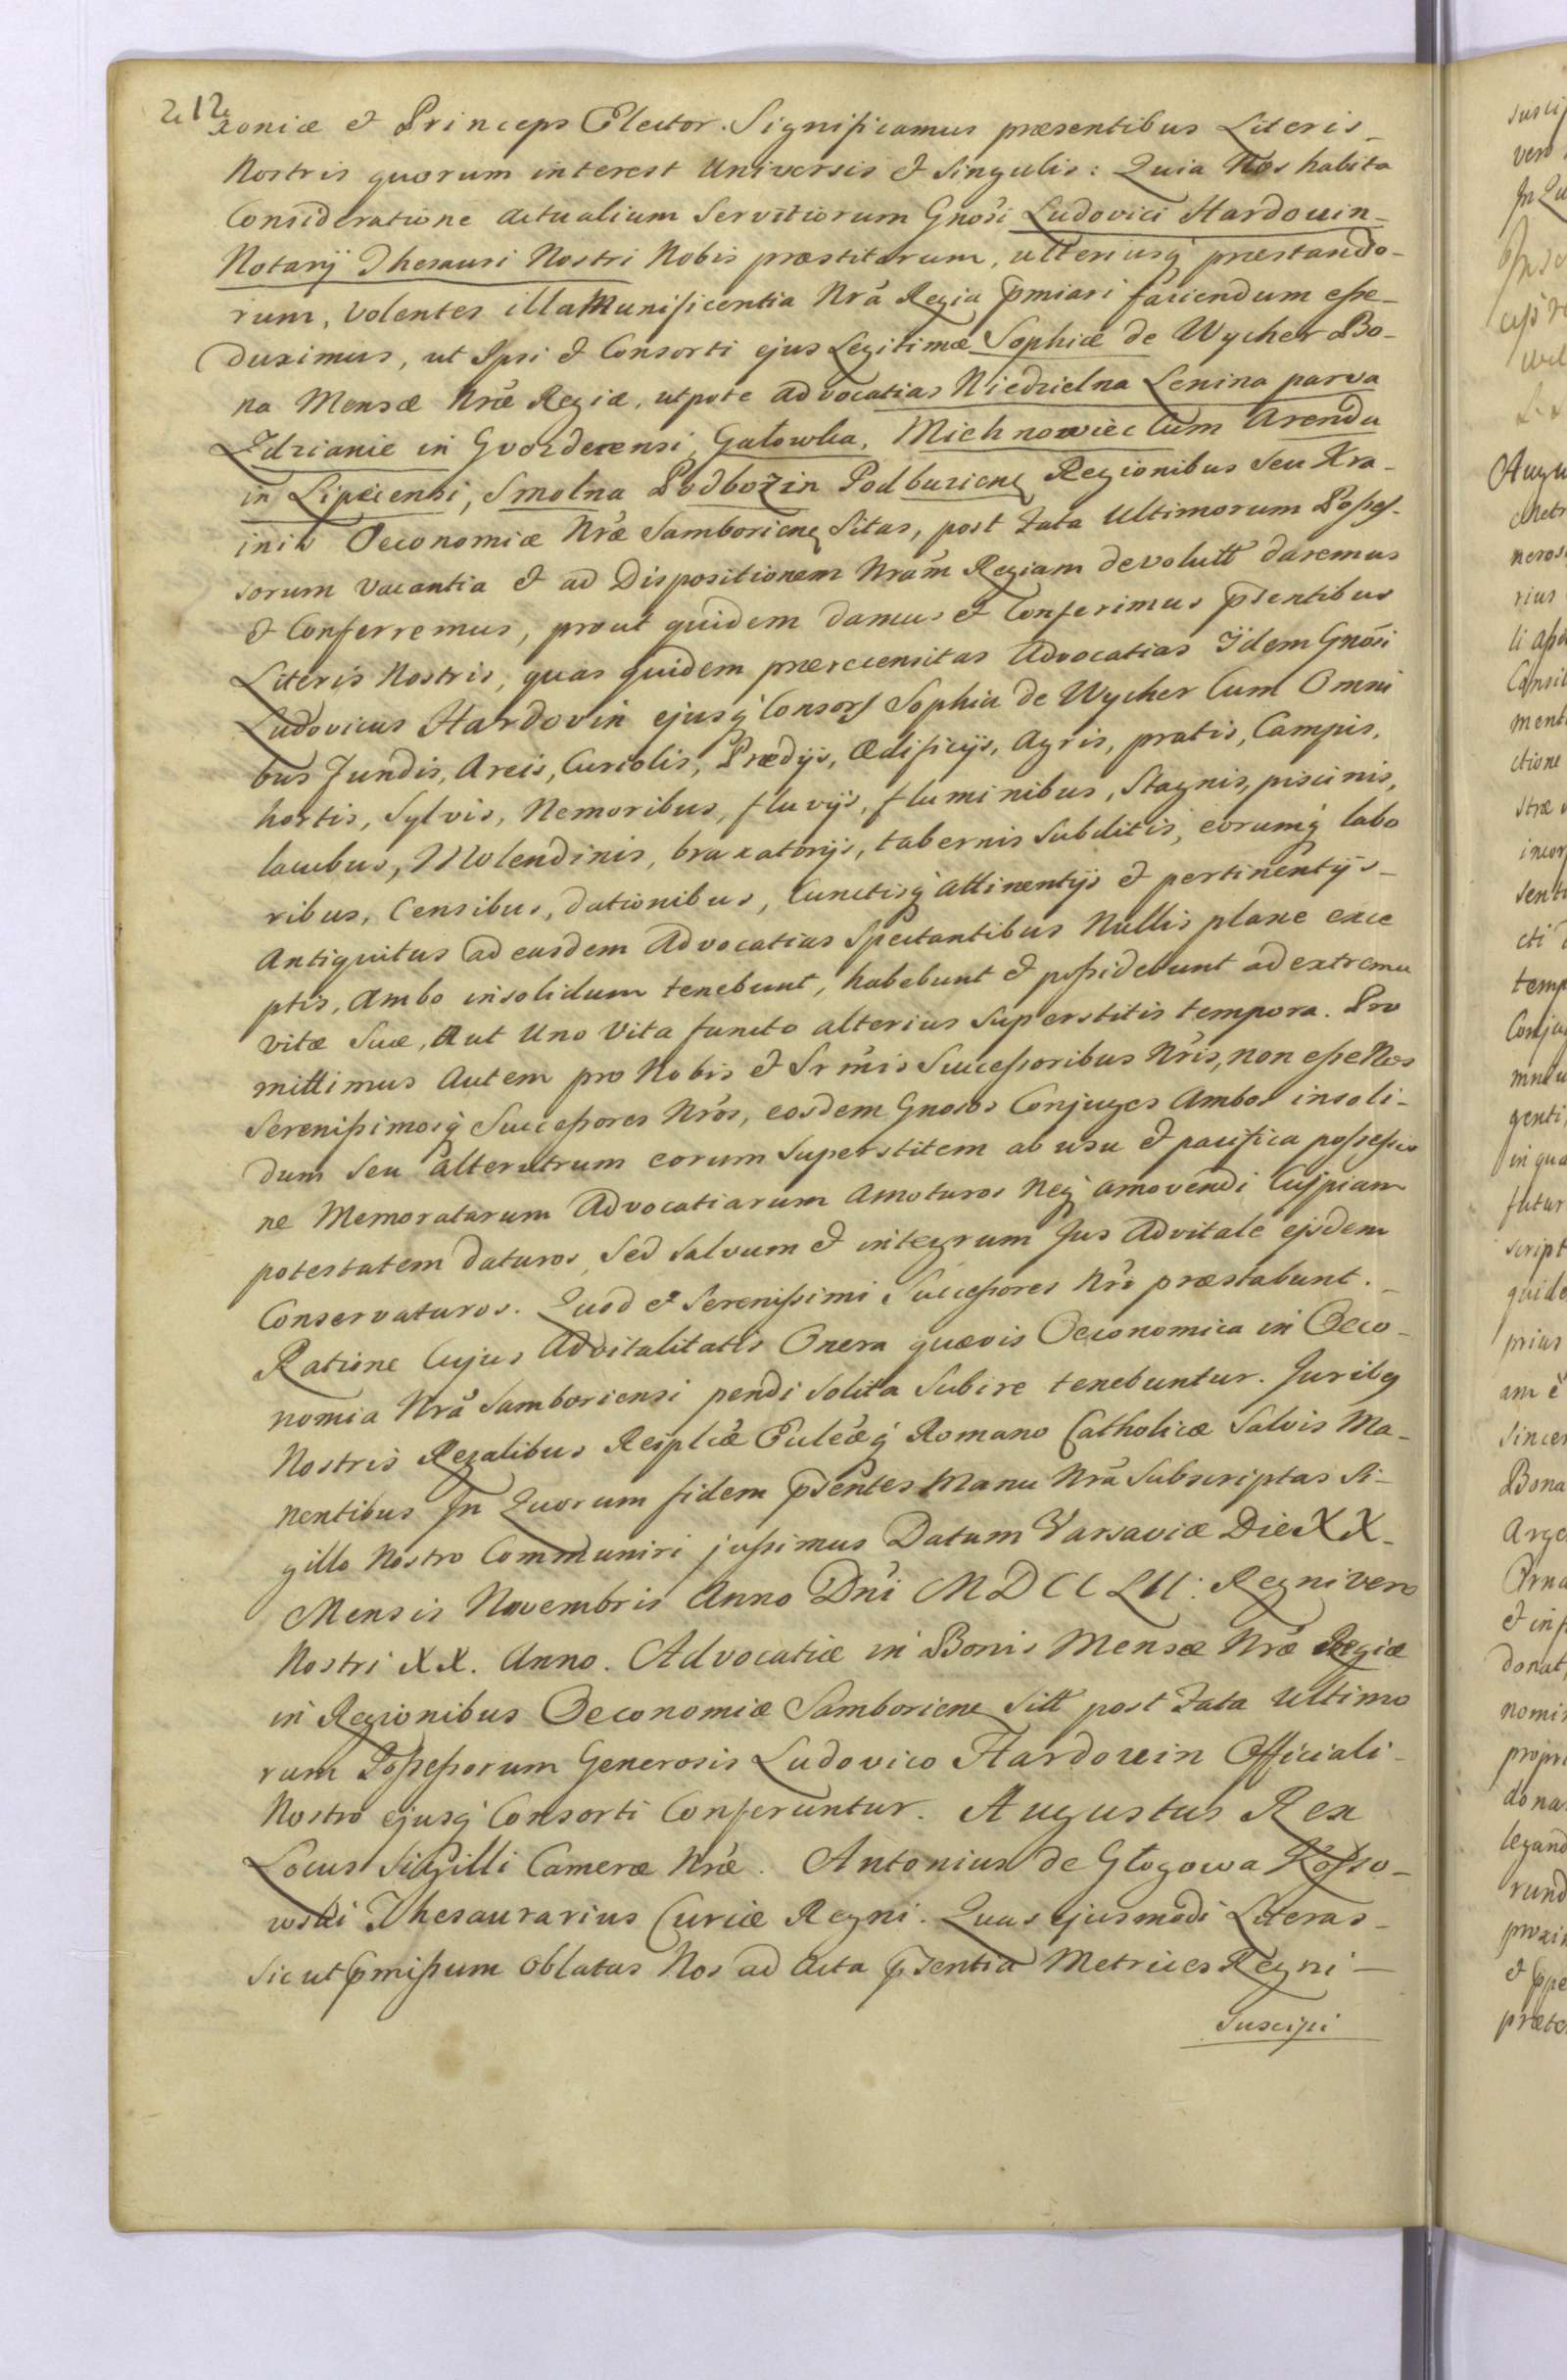 212
xoniæ et Princeps Elector. Significamus præsentibus Literis
Nostris quorum interest Universis et Singulis: Quia Nos habita
Consideratione actualium Servitiorum Gnosi Ludovici Hardouin
Notarij Thesauri Nostri Nobis præstitorum, ulteriusq præstando-
rum, Volentes illa Munificentia Nrã Regia pmiari faciendum esse
duximus, ut Ipsi et Consorti ejus Legitimæ Sophiæ de Wycher Bo-
na Mensæ Nræ Regiæ, utpote advocatias Niedzielna Lenina parva
Zdzianie in Gvozdecensi, Gałowka, Michnowiec Cum Arenda
in Lipeciensi, Smolna Podbozin Podbuzieng Regionibus Seu Kra-
inis Oeconomiæ Nræ Samborieng Sitas, post Fata Ultimorum Posses-
sorum Vacantia et ad Dispositionem Nram Regiam devolutt daremus
et Conferremus, prout quidem damus et Conferimus psentibus
Literis Nostris, quas quidem præcensitas Advocatias Ijdem Gnosi
Ludovicus Hardovin ejusq Consors Sophia de Wycher Cum Omni
bus Fundis, Areis, Curiolis, Prædijs, Ædificijs, Agris, pratis, Campis,
hortis, Sylvis, Nemoribus, fluvijs, fluminibus, Stagnis, piscinis,
lacubus, Molendinis, braxatorijs, tabernis Subditis, eorumq labo
ribus, Censibus, dationibus, Cunctisq attinentijs et pertinentijs
Antiquitus ad easdem Advocatias Spectantibus Nullis plane exce
ptis, Ambo insolidum tenebunt, habebunt et possidebunt ad extrema
vitæ Suæ, Aut Uno Vita functo alterius Superstitis tempora. Pro
mittimus Autem pro Nobis et Srmis Successoribus Nris, non esse Nos
Serenissimosq Successores Nros, eosdem Gnosos Conjuges Ambos insoli-
dum Seu alterutrum eorum Superstitem ab usu et pacifica possessio
ne Memoratarum Advocatiarum Amoturos Neq amovendi Cuipiam
potestatem daturos, Sed Salvum et integrum Jus Advitale ejsdem
Conservaturos. Quod et Serenissimi Successores Nri præstabunt.
Ratione Cujus Advitalitatis Onera quævis Oeconomica in Oeco-
nomia Nrã Samboriensi pendi Solita Subire tenebuntur. Juribg
Nostris Regalibus Reiplcæ Ecleæq Romano Catholicæ Salvis Ma-
nentibus In Quorum fidem psentes Manu Nrã Subscriptas Si-
gillo Nostro Communiri jussimus Datum Varsaviæ Die XX
Mensis Novembris Anno Dni MDCCLII: Regni vero
Nostri XX. Anno. Advocatiæ in Bonis Mensæ Nræ Regiæ
in Regionibus Oeconomiæ Samborieng Sitt post Fata Ultimo
rum Possessorum Generosis Ludovico Hardouin Officiali
Nostro ejusq Consorti Conferuntur. Augustus Rex
Locus Sigilli Cameræ Nræ. Antonius de Głogowa Kosso-
wski Thesaurarius Curiæ Regni. Quas ejusmodi Literas
Sicut pmissum oblatas Nos ad Acta psentia Metrices Regni
Suscipi